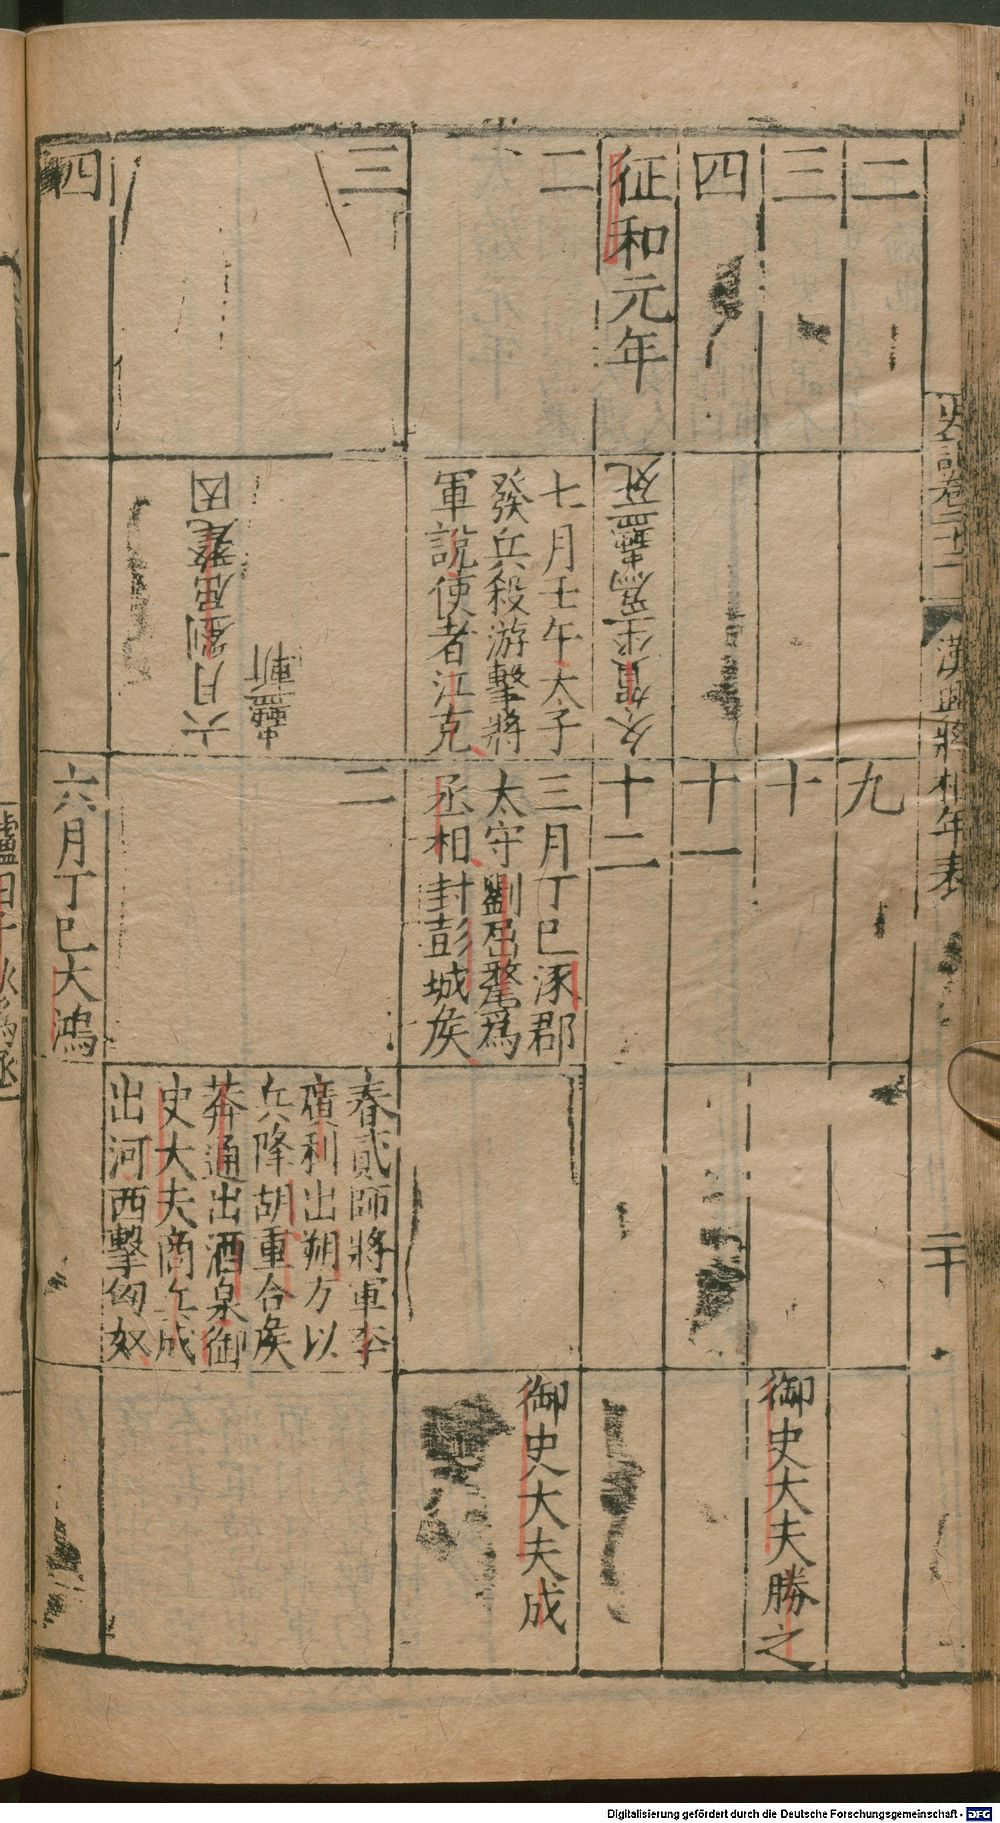 史記卷二十二
漢興將相年表
二十
二
九
三
十
御史大夫勝之
四
十一
征和元年
冬賀坐為蠱死
十二
二
七月壬午太子
發兵殺游擊將
軍說使者江充
三月丁巳涿郡
太守劉屈氂爲
丞相封彭城侯
御史大夫成
三
六月劉屈氂因
蠱斬
二
春貳師將軍李
廣利出朔方以
兵降胡重合侯
莽通出酒泉御
史大夫商丘成
出河西擊匈奴
四
六月丁巳大鴻
Digitalisierung gefördert durch die Deutsche Forschungsgemeinschaft - DFG